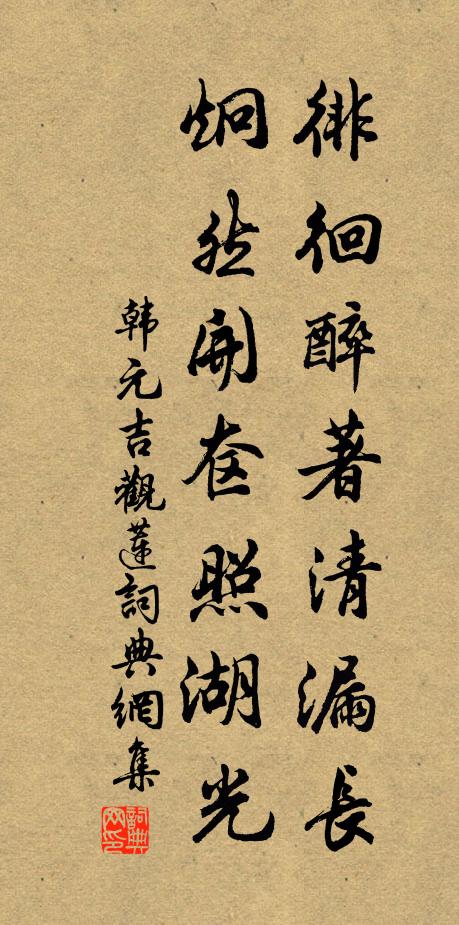 徘徊醉著清漏長
炯然開奁照湖光
韓元吉觀蓮詞典網集
詞典
网印